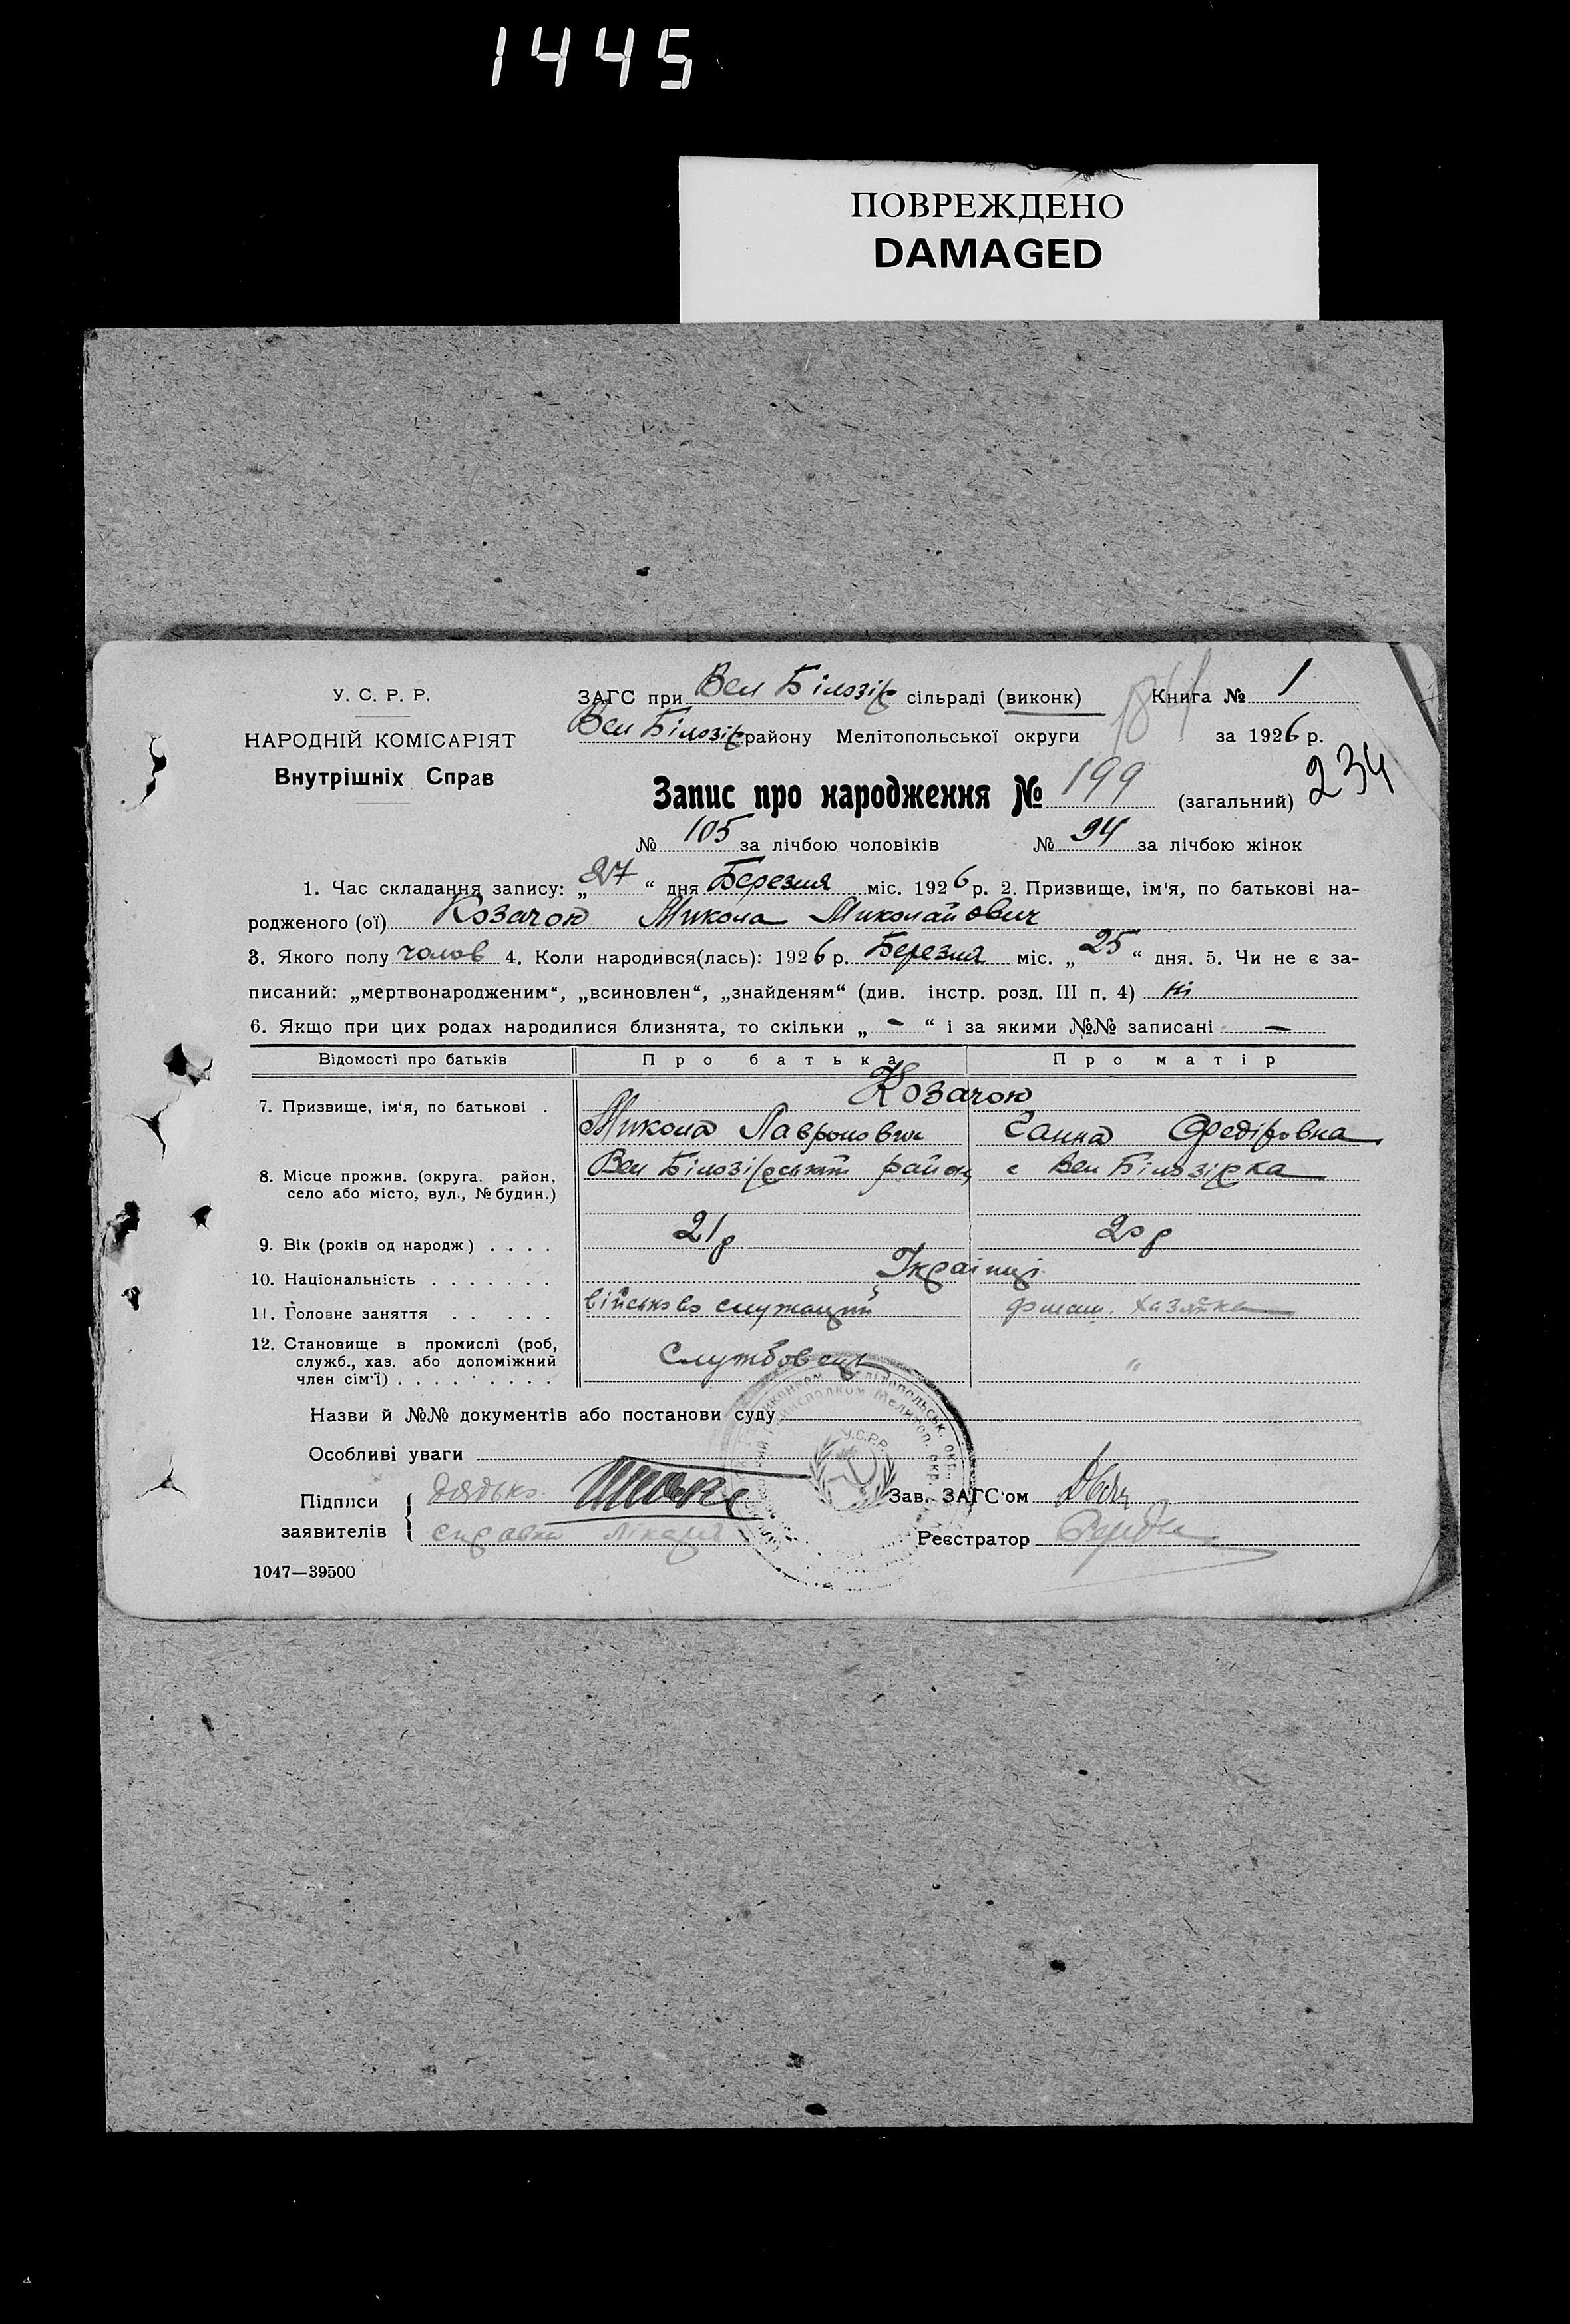 1445
ПОВРЕЖДЕНО
DAMAGED
У. С. Р. Р.
НАРОДНІЙ КОМІСАРІЯТ
Внутрішніх Справ
ЗАГС при Вел Білозір сільраді (виконк) Книга № 1
Вел Білозір району Мелітопольської округи за 1926 р.
Запис про народження № 199 (загальний) 234
№ 105 за лічбою чоловіків № 94 за лічбою жінок
1. Час складання запису: „27“ дня Березня міс. 1926 р. 2. Призвище, ім‘я, по батькові на-
родженого (ої) Козачок Микола Миколайович
3. Якого полу чолов 4. Коли народився(лась): 1926 р. Березня міс. „25“ дня. 5. Чи не є за-
писаний: „мертвонародженим“, „всиновлен“, „знайденям“ (див. інстр. розд. III п. 4) ні
6. Якщо при цих родах народилися близнята, то скільки „-“ і за якими №№ записані —
Відомості про батьків Про батька Про матір
Козачок
7. Призвище, ім‘я, по батькові . Микола Лавронович Ганна Федіровна
8. Місце прожив. (округа. район, Вел Білозірський район, с Вел Білозірка
село або місто, вул., № будин.)
9. Вік (років од народж) . . . . 21 р 20 р
10. Національність . . . . . . . Українці
11. Головне заняття . . . . . військово служащий хазяйка
12. Становище в промислі (роб, Службовець "
служб., хаз. або допоміжний
член сім‘ї) . . . . . . . . .
Назви й №№ документів або постанови суду
Особливі уваги
У.С.Р.Р.
Підписи дядько Зав. ЗАГС‘ом
заявителів справка лікаря Реєстратор
1047—39500